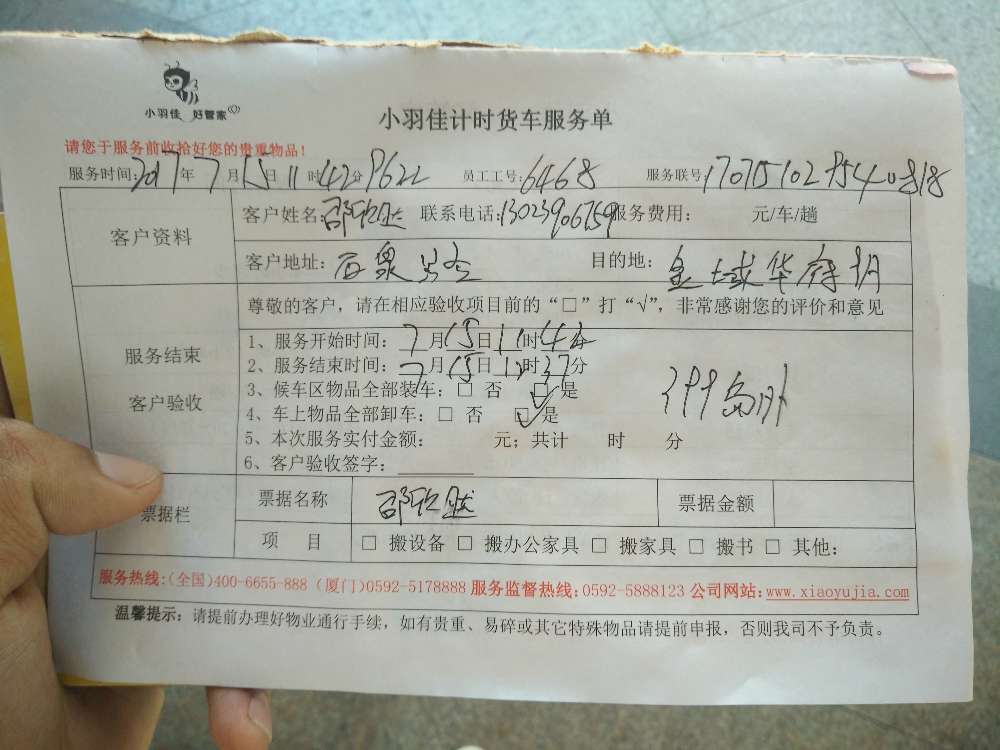 小羽佳 好管家
小羽佳计时货车服务单
请您于服务前收拾好您的贵重物品!
服务时间:2017年7月15日11时42分 9622 员工工号:6468 服务联号:
客户资料
客户姓名:邵欣 联系电话:13023906759 服务费用: 元/车/趟
客户地址: 目的地:
服务结束
客户验收
尊敬的客户,请在相应验收项目前的“□”打“√”,非常感谢您的评价和意见
1、服务开始时间:7月15日11时42分
2、服务结束时间:7月15日12时37分
3、候车区物品全部装车:□ 否 □是
4、车上物品全部卸车:□ 否 □是
5、本次服务实付金额: 元;共计 时 分
6、客户验收签字:
票据栏
票据名称 邵欣 票据金额
项 目 □ 搬设备 □ 搬办公家具 □ 搬家具 □ 搬书 □ 其他:
服务热线:(全国)400-6655-888 (厦门)0592-5178888 服务监督热线:0592-5888123 公司网站:www.xiaoyujia.com
温馨提示:请提前办理好物业通行手续,如有贵重、易碎或其它特殊物品请提前申报,否则我司不予负责。